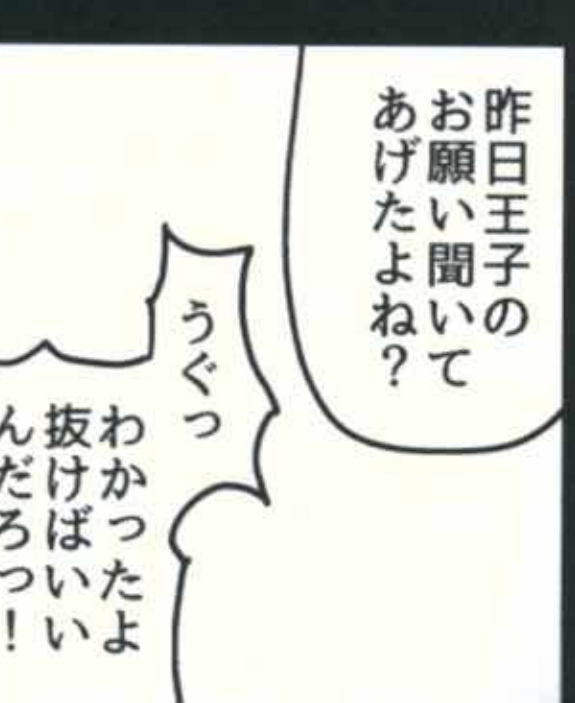 昨日王子の
お願い聞いて
あげたよね？
うぐっ
わかったよ
抜けばいい
んだろっ！